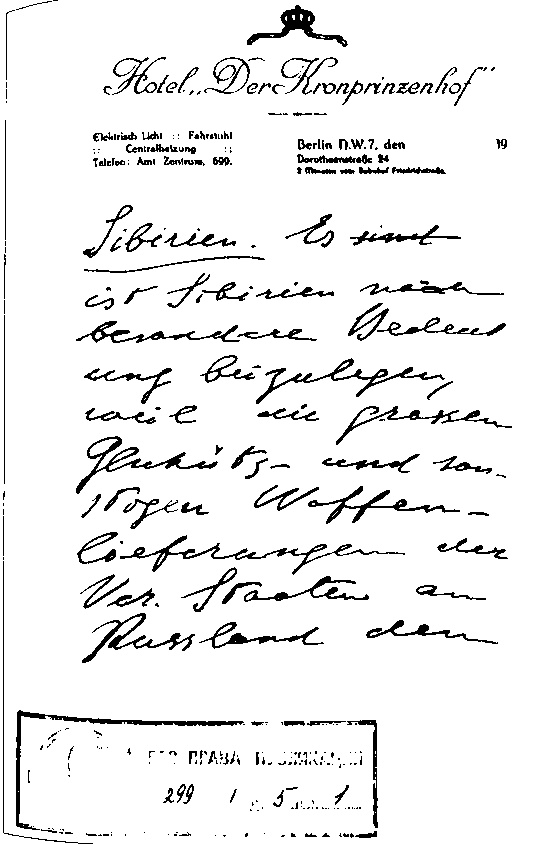 Hotel „Der Kronprinzenhof"
Elektrisch Licht :: Fahrstuhl
:: Centralheizung ::
Telefon: Amt Zentrum, 699.
Berlin N.W.7, den 19
Dorotheenstraße 24
2 Minuten vom Bahnhof Friedrichstraße.
Sibirien. Es sind
ist Sibirien noch
besondere Bedeut
ung beizulegen,
weil die grossen
Geschütz- und son-
stigen Waffen-
lieferungen der
Ver. Staaten an
Russland den
ПРАВА
299 1 5 1